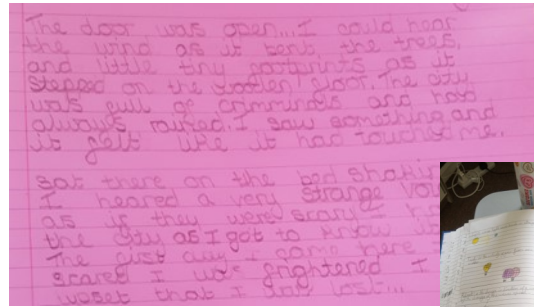 The door was open...I could hear
the wind as it bent the trees,
and little tiny footprints as it
stepped on the wooden floor. The city
was full of criminals and had
always I saw something and
it felt like it had touched me.
sat there on the bed
I heared a very strange
as if they were scary I
the city as I got to know
The first day I came here
scared I was frightened I
that I was lost...